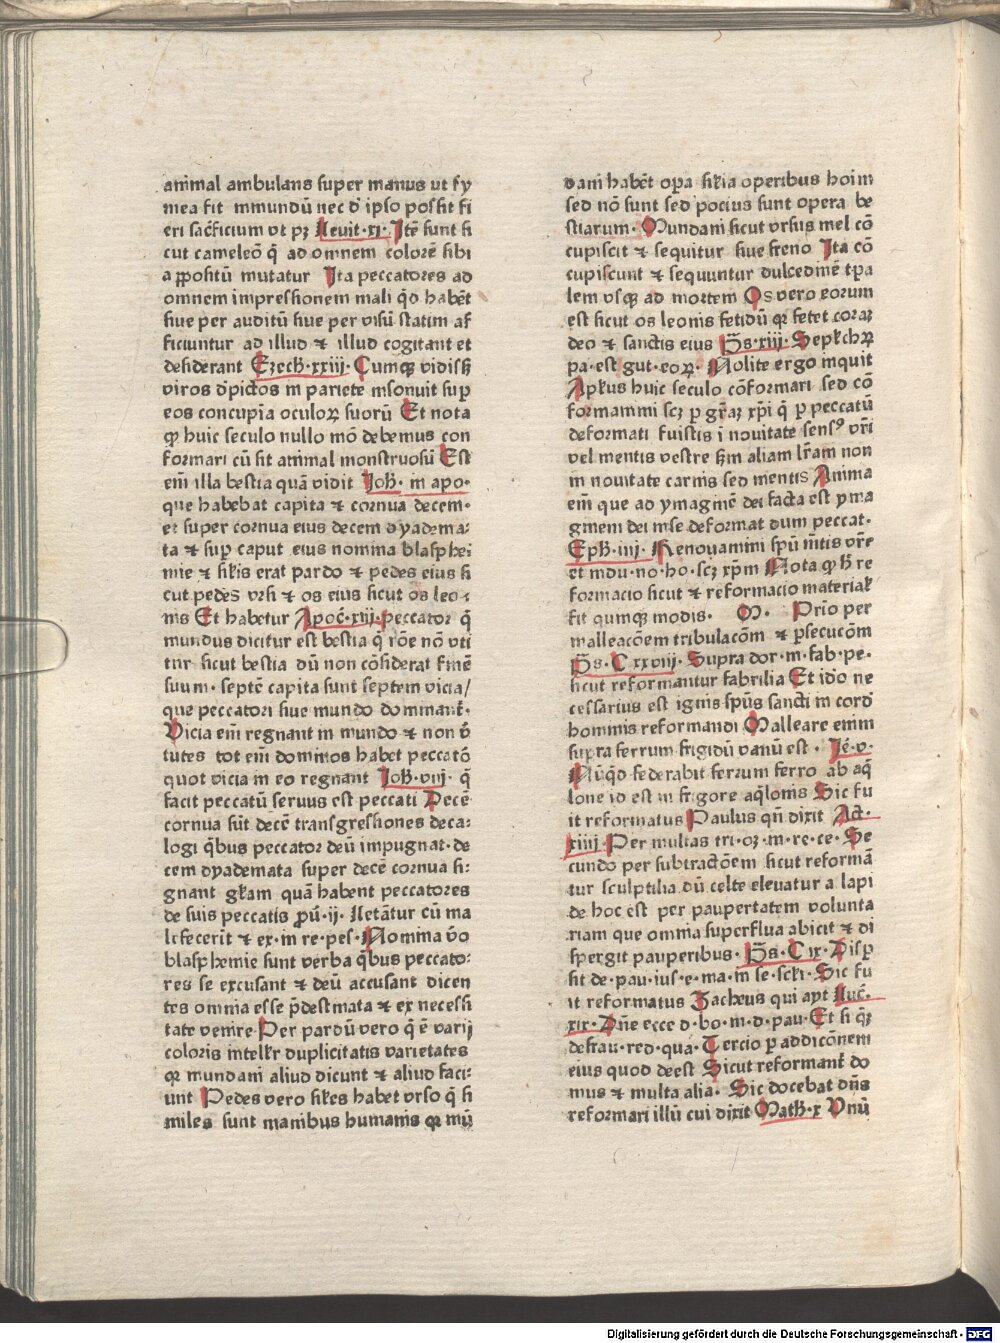 animal ambulans super manus ut sy
mea sit inmundū nec d̄ ipso possit fi
eri sac̄ficium vt pꝫ Leuit·xi· Itē sunt si
cut cameleō q̄ ad omnem colorē sibi
appositū mutatur Ita peccatores ad
omnem impressionem mali qd̄ habēt
siue per auditū siue per visū statim af
ficiuntur ad illud ⁊ illud cogitant et
desiderant Ezech·xxiij· Cumqꝫ vidissꝫ
viros d̄pictos in pariete insonuit suꝑ
eos concupīa oculoꝝ suorū Et nota
ꝙ huic seculo nullo mō debemus con
formari cū sit animal monstruosū Est
em̄ illa bestia quā vidit Joh̄· in apo·
que habebat capita ⁊ cornua decem·
et super cornua eius decem dyadema:
ta ⁊ suꝑ caput eius nomina blasphei
mie ⁊ sil̄is erat pardo ⁊ pedes eius si
cut pedes vrsi ⁊ os eius sicut os leo:
nis Et habetur Apoc̄·xiij· peccator q̄
mundus dicitur est bestia q̄ rōe nō vti
tur sicut bestia dū non cōsiderat finē
suum· septē capita sunt septem vicia/
que peccatori siue mundo dominant̄·
Vicia em̄ regnant in mundo ⁊ non v̄
tutes tot em̄ dominos habet peccatō
quot vicia in eo regnant Joh̄·viij· q̄
facit peccatū seruus est peccati Decē
cornua sūt decē transgressiones deca:
logi q̄bus peccator deū impugnat· de
cem dyademata super decē cornua si:
gnant gl̄iam quā habent peccatores
de suis peccatis ꝓū·ij· Letāt̄ur cū ma
le fecerīt ⁊ ex·in re·pes· Nomina v̄o
blasphemie sunt verba q̄bus peccato:
res se excusant ⁊ deū accusant dicen
tes omnia esse p̄destinata ⁊ ex necessi
tate venire Per pardū vero q̄ ē varij
coloris intell̄r duplicitatis varietates
ꝙ mundani aliud dicunt ⁊ aliud faci:
unt Pedes vero sil̄es habet vrso q̄ si
miles sunt manibus humanis ꝙ mū
dani habēt oꝑa sil̄ia operibus hoīm
sed nō sunt sed pocius sunt opera be
stiarum· Mundani sicut vrsus mel cō
cupiscit ⁊ sequitur siue freno Ita cō
cupiscunt ⁊ sequuntur dulcedinē tꝑa
lem vsqꝫ ad mortem Os vero eorum
est sicut os leonis fetidū ꝙ fetet coraꝫ
deo ⁊ sanctis eius P̄s·xiij· Sepl̄chꝝ
pa·est gut·eoꝝ· Nolite ergo inquit
Apl̄us huic seculo cōformari sed cō
formamini scꝫ ꝑ gr̄aꝫ xp̄i q̄ ꝑ peccatū
deformati fuistis ī nouitate senſꝰ vr̄i
vel mentis vestre s̄m aliam lr̄am non
in nouitate carnis sed mentis Anima
em̄ que ad ymaginē dei facta est yma
ginem dei in se deformat dum peccat·
Eph̄·iiij· Renouamini sp̄u mētis vr̄e
et indu·no·ho·scꝫ xp̄m Nota ꝙ h̄ re
formacio sicut ⁊ reformacio material̄
fit quinqꝫ modis· M· Prīo per
malleacōem tribulacōm ⁊ ꝑsecucōm
P̄s·Cxxviij· Supra dor·m·fab·pe·
sicut reformantur fabrilia Et ido ne
cessarius est ignis sp̄us sancti in cord̄
hominis reformandi Malleare enim
supra ferrum frigidū vanū est· Je·v·
Nūqd̄ federabit ferrum ferro ab aq̄
lone id est in frigore aq̄lonis Sic fu
it reformatus Paulus qn̄ dixit Act·
xiiij· Per multas tri·oꝫ·in·re·ce· Se
cundo per subtractōem sicut reformā
tur sculptilia dū celte eleuatur a lapi
de hoc est per paupertatem volunta
riam que omnia superflua abicit ⁊ di
spergit pauperibus· P̄s·Cix· Disꝑ
sit·de·pau·ius·e·ma·in se·scl̄i· Sic fu
it reformatus Zacheus qui ayt Luc̄·
xix· Dn̄e ecce d·bo·m·d·pau·Et si qꝫ
defrau·red·qua· Tercio ꝑ addicōnem
eius quod deest Sicut reformant̄ do
mus ⁊ multa alia· Sic docebat dn̄s
reformari illū cui dixit Math̄·x Vnū
Digitalisierung gefördert durch die Deutsche Forschungsgemeinschaft - DFG